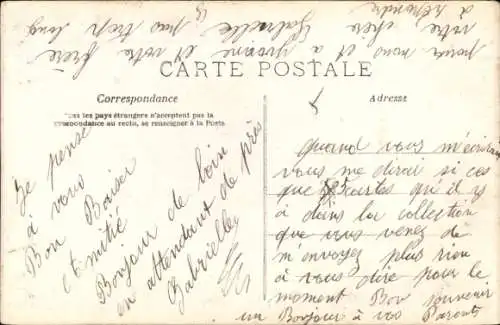 CARTE POSTALE
Correspondance
Tous les pays étrangers n'acceptent pas la
correspondance au recto, se renseigner à la Poste
Adresse
Je pense
à vous
Bon Baiser
et Amitié
Bonjour de loin
en attendant de près
Gabrielle
quand vous m'écrirai
vous me dirai si ces
que cartes qu'il y
à dans la collection
que vous venez de
m'envoyez plus rien
à vous dire pour le
moment Bon souvenir
un Bonjour à vos Parents
pour nous et a yvonne et votre frère
votre chère Gabrielle pas trop long
à répondre